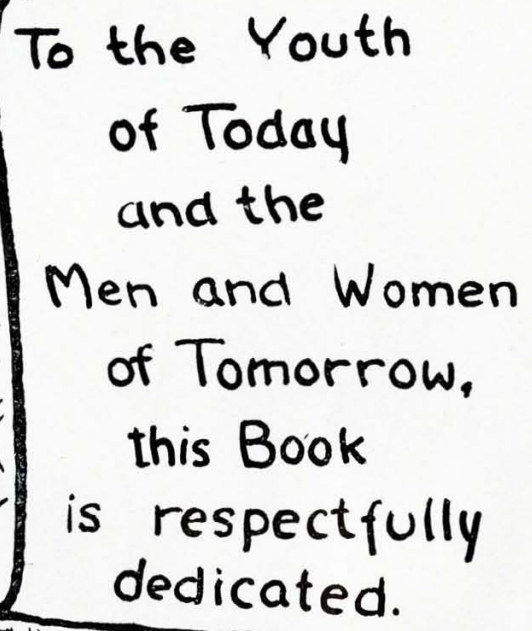 To the Youth
of Today
and the
Men and Women
of Tomorrow,
this Book
is respectfully
dedicated.